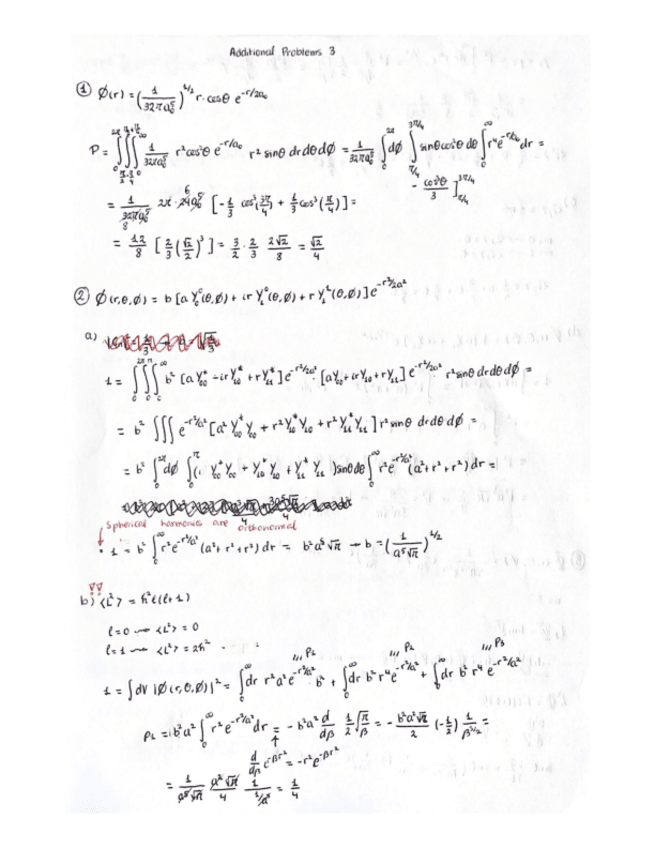 Additional Problems 3
① Ø(r) = (1/32πa₀⁵)^1/2 r·cosθ e^-r/2a₀
P = ∭ 1/32πa₀⁵ r²cos²θ e^-r/a₀ r² sinθ dr dθ dØ = 1/32πa₀⁵ ∫₀^2π dØ ∫_π/4^3π/4 sinθcos²θ dθ ∫₀^∞ r⁴e^-r/a₀ dr =
- cos³θ/3 ]_π/4^3π/4
= 1/32πa₀⁵ 2π · 24a₀⁵ [-1/3 cos³(3π/4) + 1/3 cos³(π/4)] =
= 12/8 [2/3 (√2/2)³] = 3/2 · 2/3 2√2/8 = √2/4
② Ø(r,θ,Ø) = b [a Y₀⁰(θ,Ø) + ir Y₁⁰(θ,Ø) + r Y₁¹(θ,Ø)] e^-r²/2a²
a)
1 = ∫₀^2π ∫₀^π ∫₀^∞ b² [a Y₀₀* - ir Y₁₀* + r Y₁₁*] e^-r²/2a² [a Y₀₀ + ir Y₁₀ + r Y₁₁] e^-r²/2a² r² sinθ dr dθ dØ =
= b² ∭ e^-r²/a² [a² Y₀₀* Y₀₀ + r² Y₁₀* Y₁₀ + r² Y₁₁* Y₁₁] r² sinθ dr dθ dØ =
= b² ∫₀^2π dØ ∫₀^π ( Y₀₀* Y₀₀ + Y₁₀* Y₁₀ + Y₁₁* Y₁₁ ) sinθ dθ ∫₀^∞ r² e^-r²/a² (a² + r² + r²) dr =
Spherical harmonics are orthonormal
1 = b² ∫₀^∞ r² e^-r²/a² (a² + r² + r²) dr = b² a⁵ √π → b = (1/a⁵√π)^1/2
b) <L²> = ħ² l(l+1)
l=0 → <L²> = 0
l=1 → <L²> = 2ħ²
P₁ P₂ P₃
1 = ∫dV |Ø(r,θ,Ø)|² = ∫₀^∞ dr r² a² e^-r²/a² b² + ∫₀^∞ dr b² r⁴ e^-r²/a² + ∫₀^∞ dr b² r⁴ e^-r²/a²
P₁ = b² a² ∫₀^∞ r² e^-r²/a² dr = - b² a² d/dβ 1/2 √π/β = - b² a² √π/2 (-1/2) 1/β^3/2 =
d/dβ e^-βr² = -r² e^-βr²
= 1/a⁵√π a²√π/4 1/1/a³ = 1/4